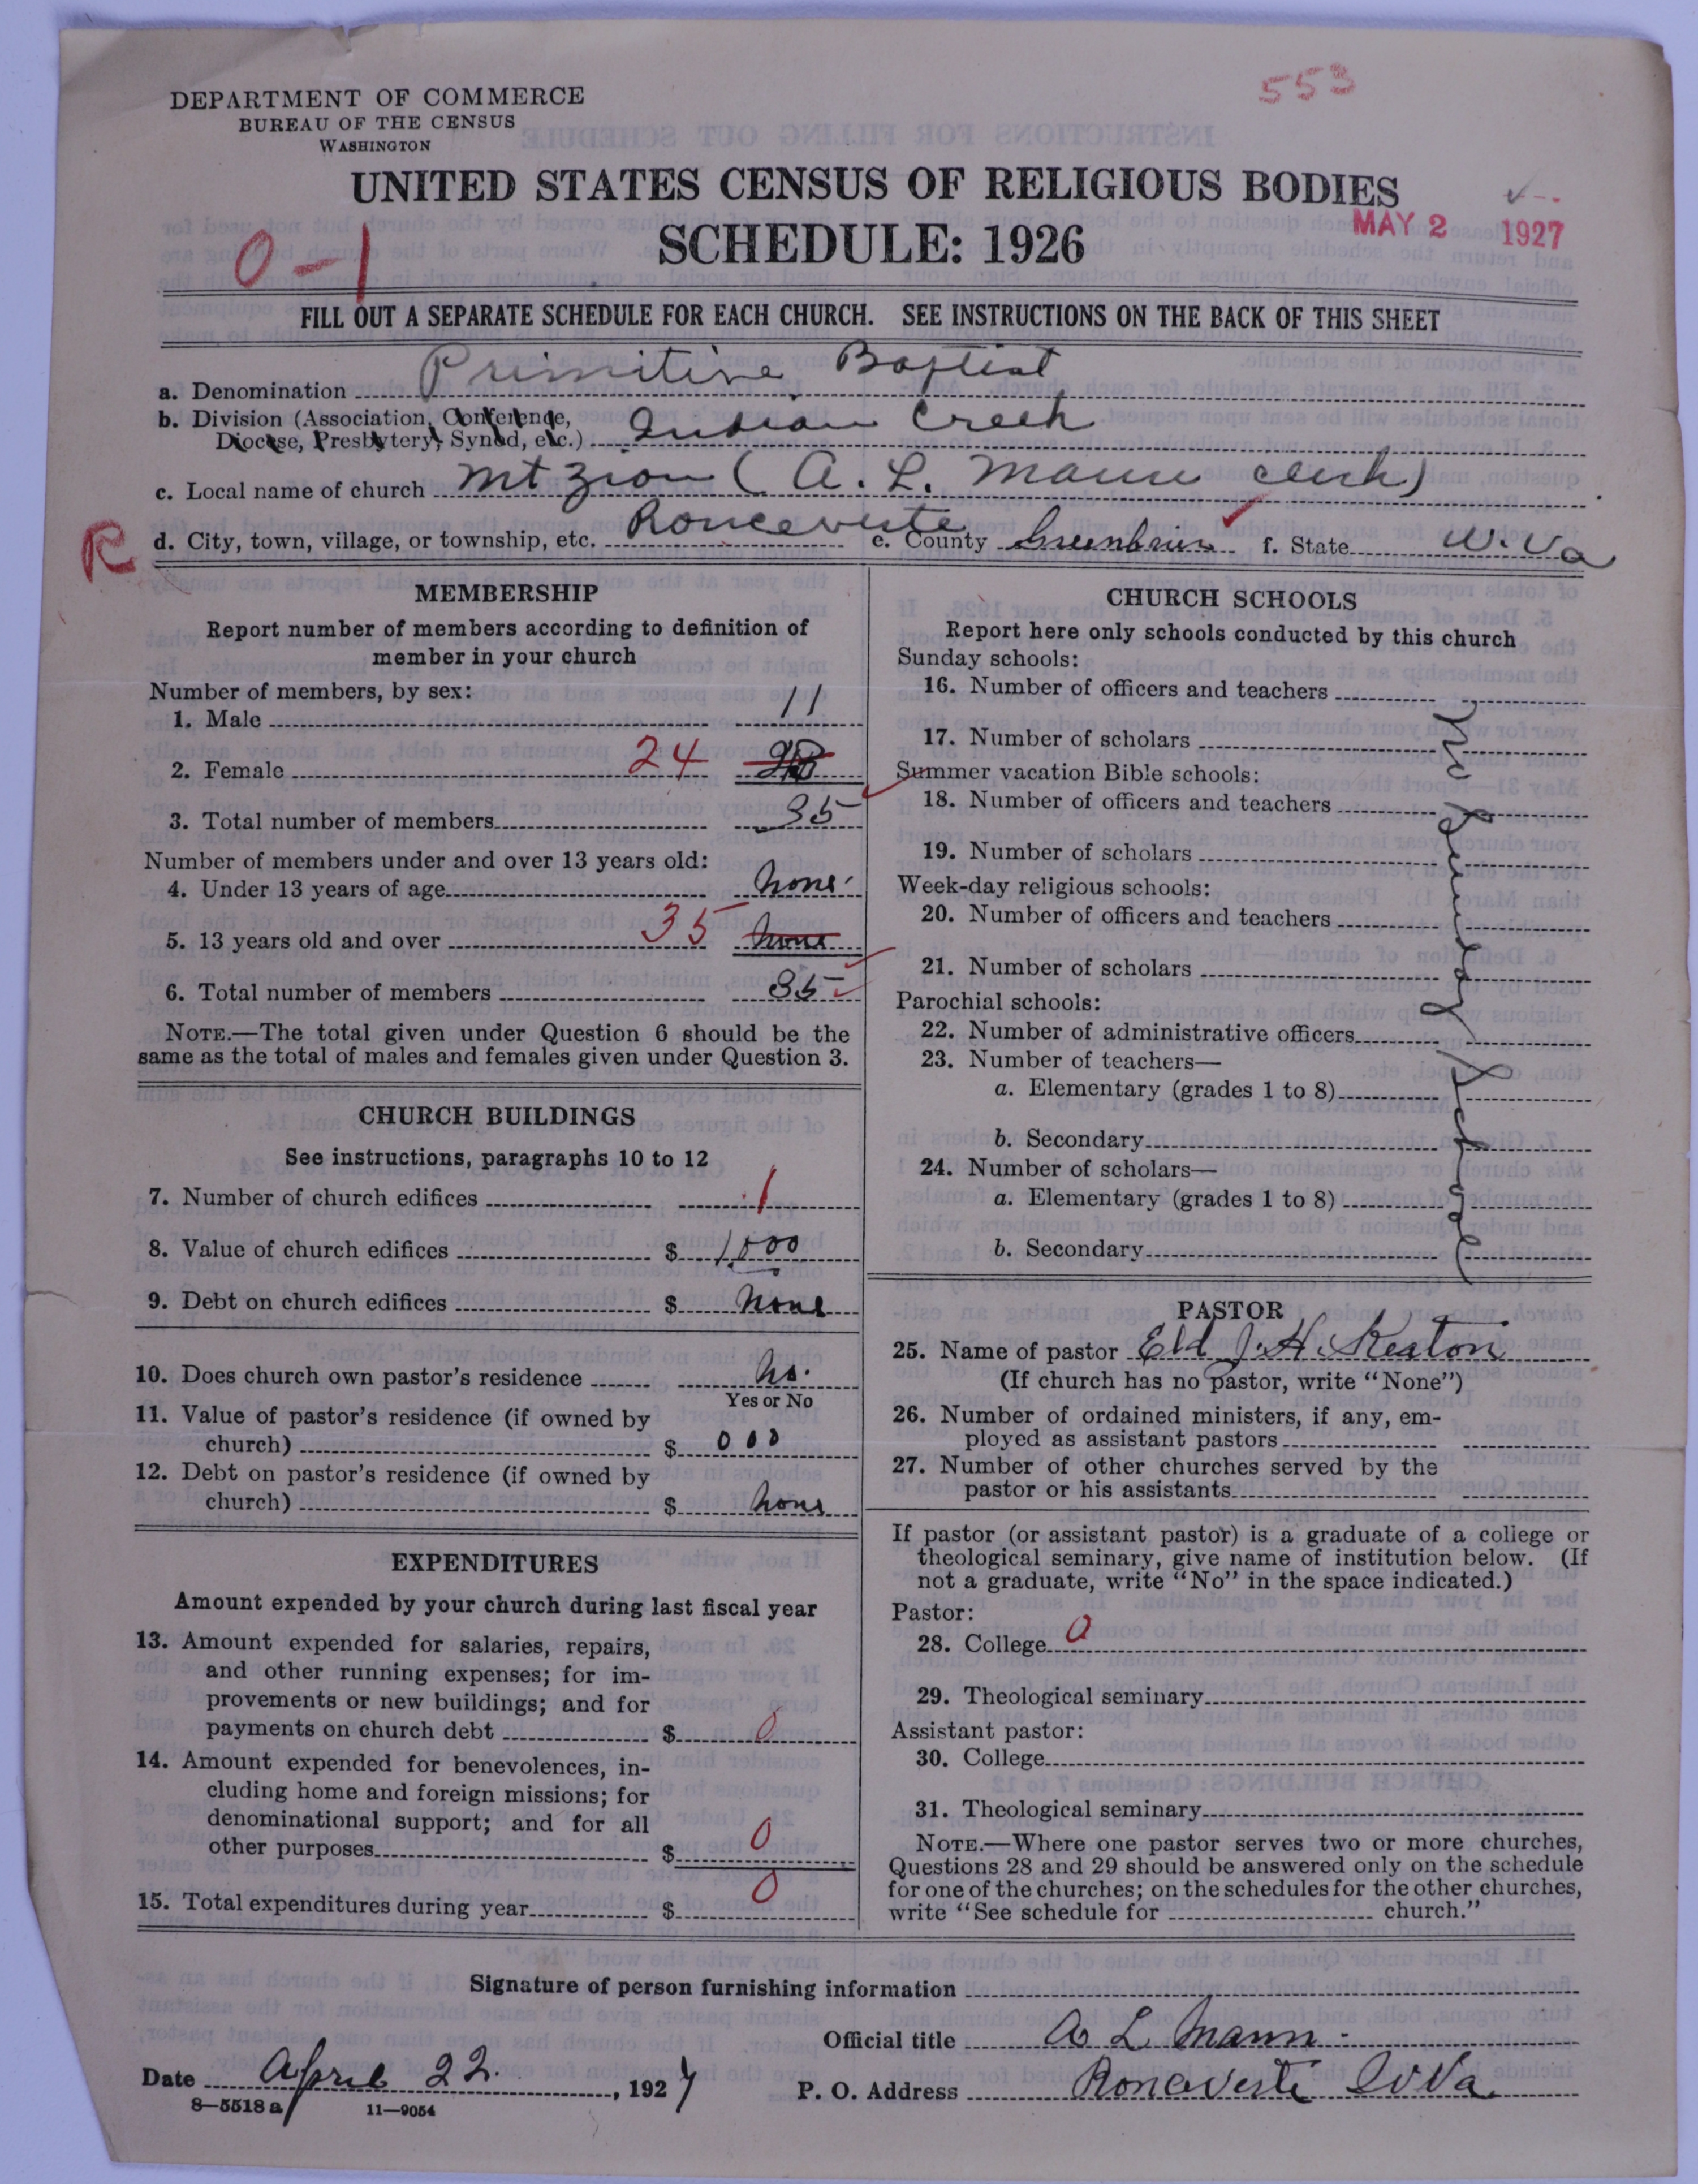 553
DEPARTMENT OF COMMERCE
BUREAU OF THE CENSUS
WASHINGTON
UNITED STATES CENSUS OF RELIGIOUS BODIES
SCHEDULE: 1926
MAY 2 1927
0-1
FILL OUT A SEPARATE SCHEDULE FOR EACH CHURCH. SEE INSTRUCTIONS ON THE BACK OF THIS SHEET
a. Denomination Primitive Baptist
b. Division (Association, Conference,
Diocese, Presbytery, Synod, etc.) Indian Creek
c. Local name of church Mt Zion (A. L. Mann clerk)
R d. City, town, village, or township, etc. Ronceverte e. County Greenbrier f. State W. Va
MEMBERSHIP
Report number of members according to definition of
member in your church
Number of members, by sex:
1. Male 11
2. Female 24
3. Total number of members 35
Number of members under and over 13 years old:
4. Under 13 years of age none
5. 13 years old and over 35 none
6. Total number of members 35
NOTE.—The total given under Question 6 should be the
same as the total of males and females given under Question 3.
CHURCH BUILDINGS
See instructions, paragraphs 10 to 12
7. Number of church edifices 1
8. Value of church edifices $ 1,000
9. Debt on church edifices $ none
10. Does church own pastor's residence no.
Yes or No
11. Value of pastor's residence (if owned by
church) $ 000
12. Debt on pastor's residence (if owned by
church) $ none
EXPENDITURES
Amount expended by your church during last fiscal year
13. Amount expended for salaries, repairs,
and other running expenses; for im-
provements or new buildings; and for
payments on church debt $ 0
14. Amount expended for benevolences, in-
cluding home and foreign missions; for
denominational support; and for all
other purposes $ 0
15. Total expenditures during year $ 0
CHURCH SCHOOLS
Report here only schools conducted by this church
Sunday schools:
16. Number of officers and teachers
17. Number of scholars
Summer vacation Bible schools:
18. Number of officers and teachers
19. Number of scholars
Week-day religious schools:
20. Number of officers and teachers
21. Number of scholars
Parochial schools:
22. Number of administrative officers
23. Number of teachers—
a. Elementary (grades 1 to 8)
b. Secondary
24. Number of scholars—
a. Elementary (grades 1 to 8)
b. Secondary
PASTOR
25. Name of pastor Eld J. H. Keaton
(If church has no pastor, write "None")
26. Number of ordained ministers, if any, em-
ployed as assistant pastors
27. Number of other churches served by the
pastor or his assistants
If pastor (or assistant pastor) is a graduate of a college or
theological seminary, give name of institution below. (If
not a graduate, write "No" in the space indicated.)
Pastor:
28. College 0
29. Theological seminary
Assistant pastor:
30. College
31. Theological seminary
NOTE.—Where one pastor serves two or more churches,
Questions 28 and 29 should be answered only on the schedule
for one of the churches; on the schedules for the other churches,
write "See schedule for church."
Signature of person furnishing information
Official title A L Mann
Date April 22, 1927 P. O. Address Ronceverte W Va
8—5518 a 11—9054